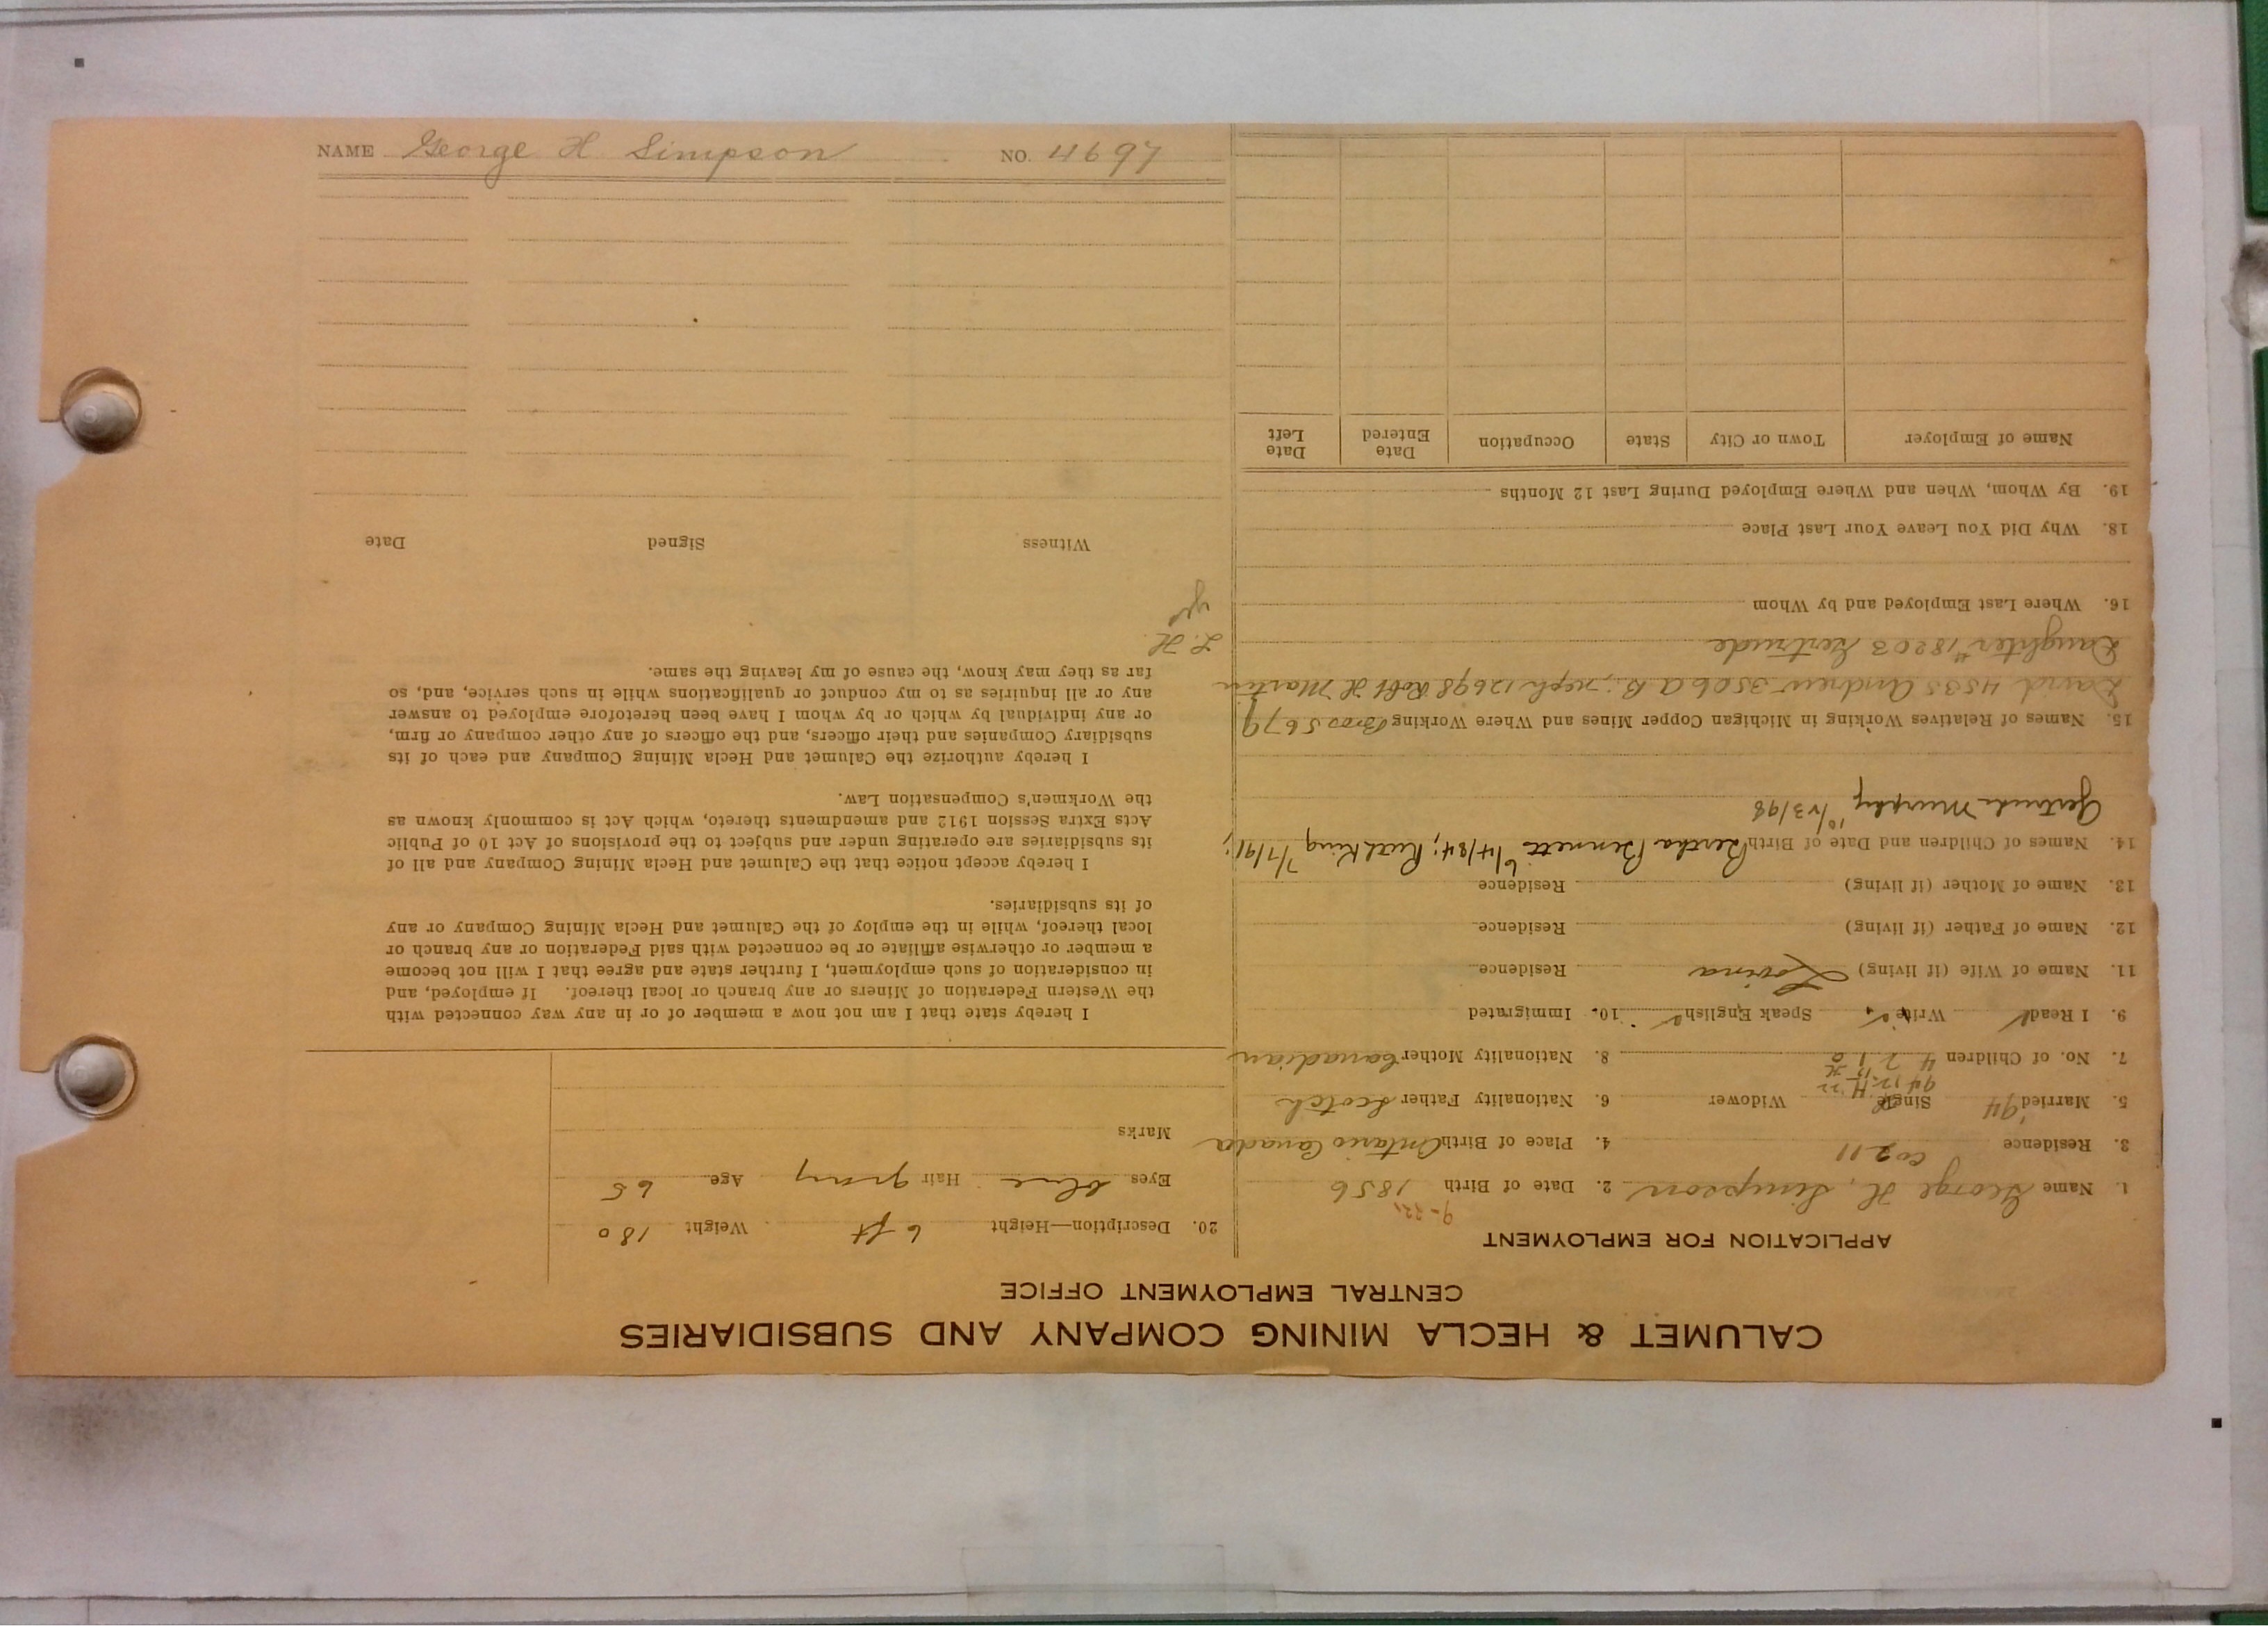 CALUMET & HECLA MINING COMPANY AND SUBSIDIARIES
CENTRAL EMPLOYMENT OFFICE
APPLICATION FOR EMPLOYMENT
9-22,
1. Name George H. Simpson 2. Date of Birth 1856
3. Residence CO 211 4. Place of Birth Ontario Canada
5. Married 94 Single Widower 6. Nationality Father Scotch
7. No. of Children 4 2 1 0 8. Nationality Mother Canadian
9. I Read ✓ Write ✓ Speak English ✓ 10. Immigrated
11. Name of Wife (if living) Lovina Residence
12. Name of Father (if living) Residence
13. Name of Mother (if living) Residence
14. Names of Children and Date of Birth Bertha Bennett 6/4/84; Ruth King 7/7/91;
Gertrude Murphy 10/23/98
15. Names of Relatives Working in Michigan Copper Mines and Where Working Bros 5679
David 4535 Andrew 3506 A B; neph 12698 Robt H Martin
Daughter #18203 Gertrude
16. Where Last Employed and by Whom
18. Why Did You Leave Your Last Place
19. By Whom, When and Where Employed During Last 12 Months
Name of Employer Town or City State Occupation Date Entered Date Left
20. Description—Height 6 ft Weight 180
Eyes blue Hair gray Age 65
Marks
I hereby state that I am not now a member of or in any way connected with
the Western Federation of Miners or any branch or local thereof. If employed, and
in consideration of such employment, I further state and agree that I will not become
a member or otherwise affiliate or be connected with said Federation or any branch or
local thereof, while in the employ of the Calumet and Hecla Mining Company or any
of its subsidiaries.
I hereby accept notice that the Calumet and Hecla Mining Company and all of
its subsidiaries are operating under and subject to the provisions of Act 10 of Public
Acts Extra Session 1912 and amendments thereto, which Act is commonly known as
the Workmen's Compensation Law.
I hereby authorize the Calumet and Hecla Mining Company and each of its
subsidiary Companies and their officers, and the officers of any other company or firm,
or any individual by which or by whom I have been heretofore employed to answer
any or all inquiries as to my conduct or qualifications while in such service, and, so
far as they may know, the cause of my leaving the same.
L. H.
yes
Witness Signed Date
NAME George H Simpson NO. 4697